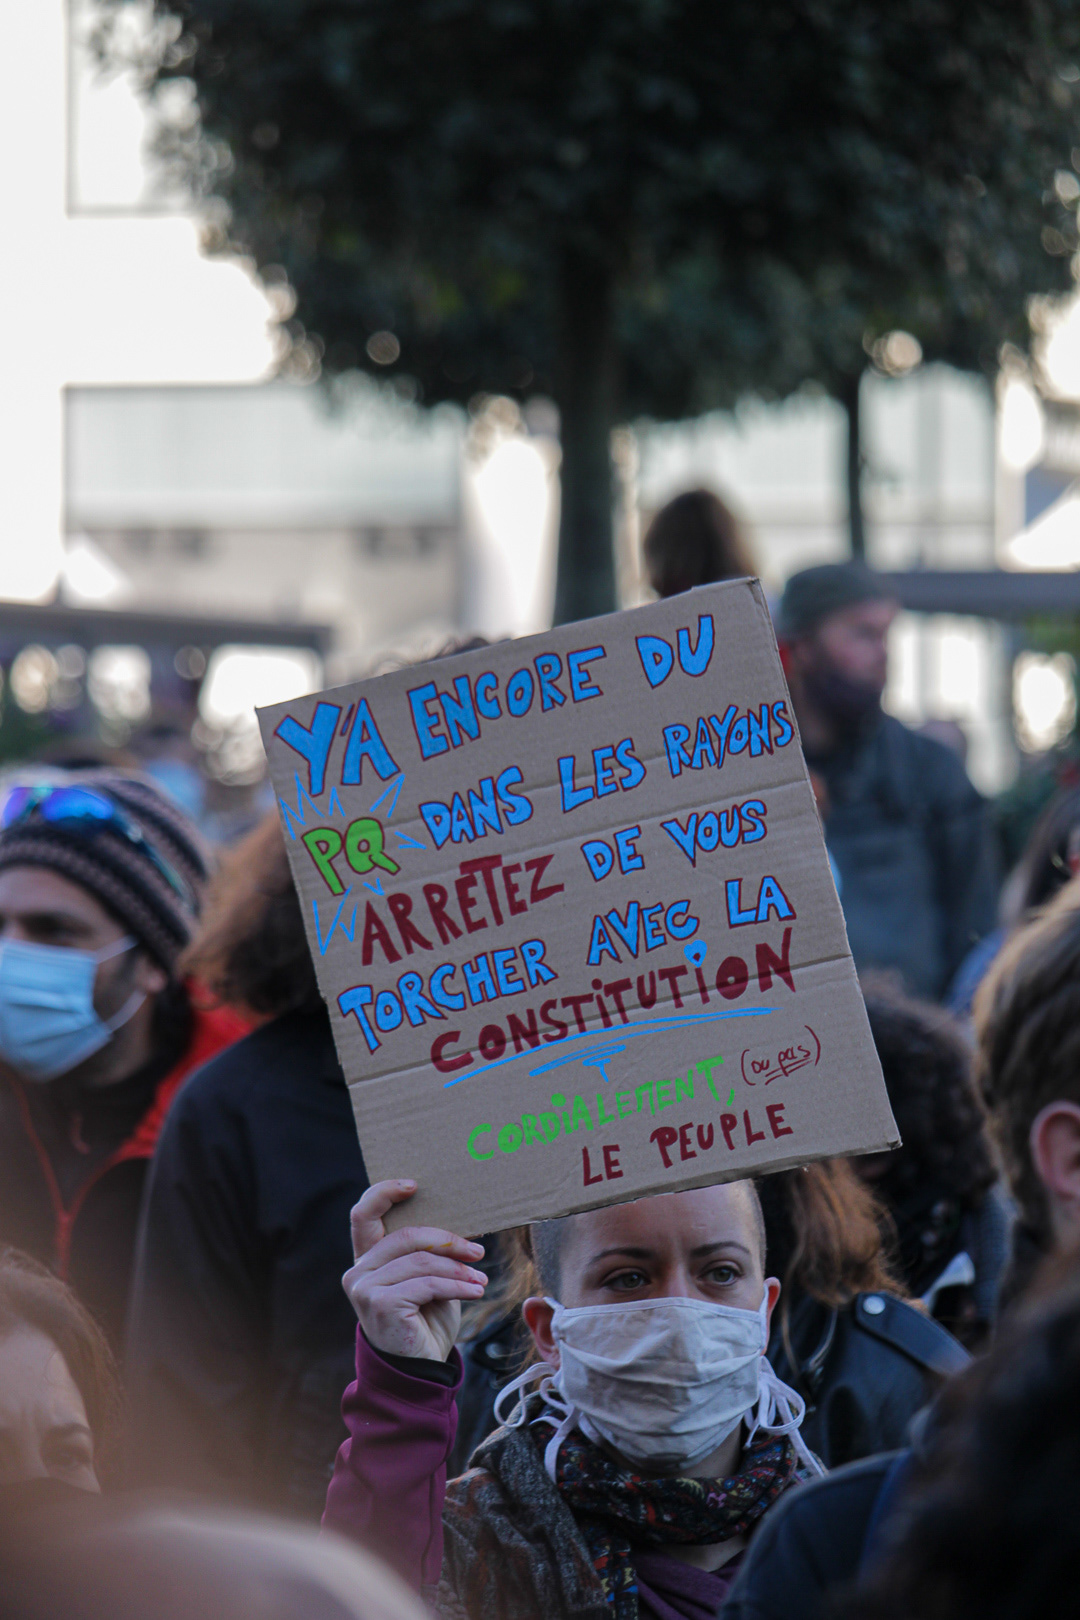 Y'A ENCORE DU
PQ DANS LES RAYONS
ARRÊTEZ DE VOUS
TORCHER AVEC LA
CONSTITUTION
CORDIALEMENT, (ou pas)
LE PEUPLE